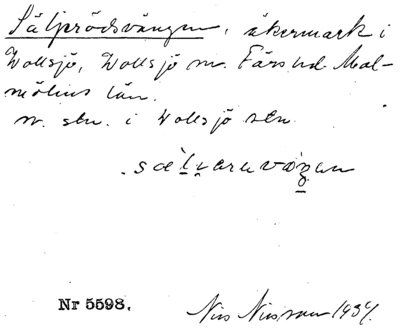 Säljerödsvängen, åkermark i
Wollsjö, Wollsjö sn. Färs hd Mal-
möhus län.
n. stn. i Wollsjö stn
sælvaravæŋan
Nr 5598.
Nils Nilsson 1934.